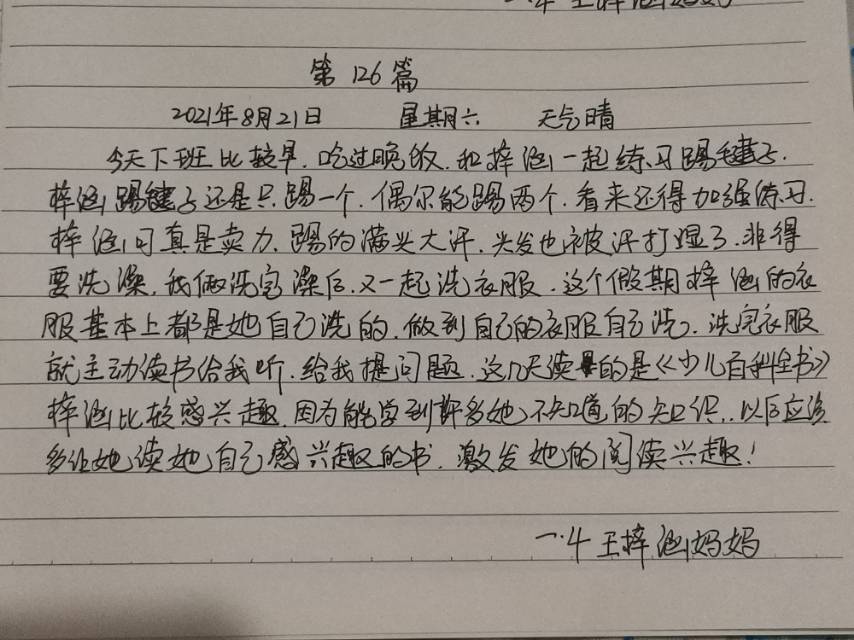 一.4 王梓涵妈妈
第126篇
2021年8月21日 星期六 天气晴
今天下班比较早.吃过晚饭.和梓涵一起练习踢毽子.
梓涵踢毽子还是只踢一个.偶尔能踢两个.看来还得加强练习.
梓涵可真是卖力.踢的满头大汗.头发也被汗打湿了.非得
要洗澡.我俩洗完澡后.又一起洗衣服.这个假期梓涵的衣
服基本上都是她自己洗的.做到自己的衣服自己洗.洗完衣服
就主动读书给我听.给我提问题.这几天读的是《少儿百科全书》
梓涵比较感兴趣.因为能学到许多她不知道的知识..以后应该
多让她读她自己感兴趣的书.激发她的阅读兴趣!
一.4 王梓涵妈妈